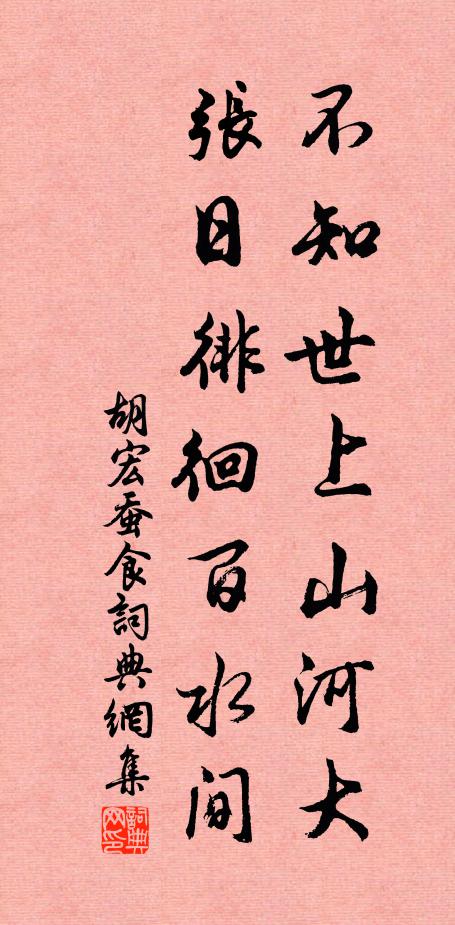 不知世上山河大
張日徘徊百水间
胡宏蚕食詞典網集
詞典网印